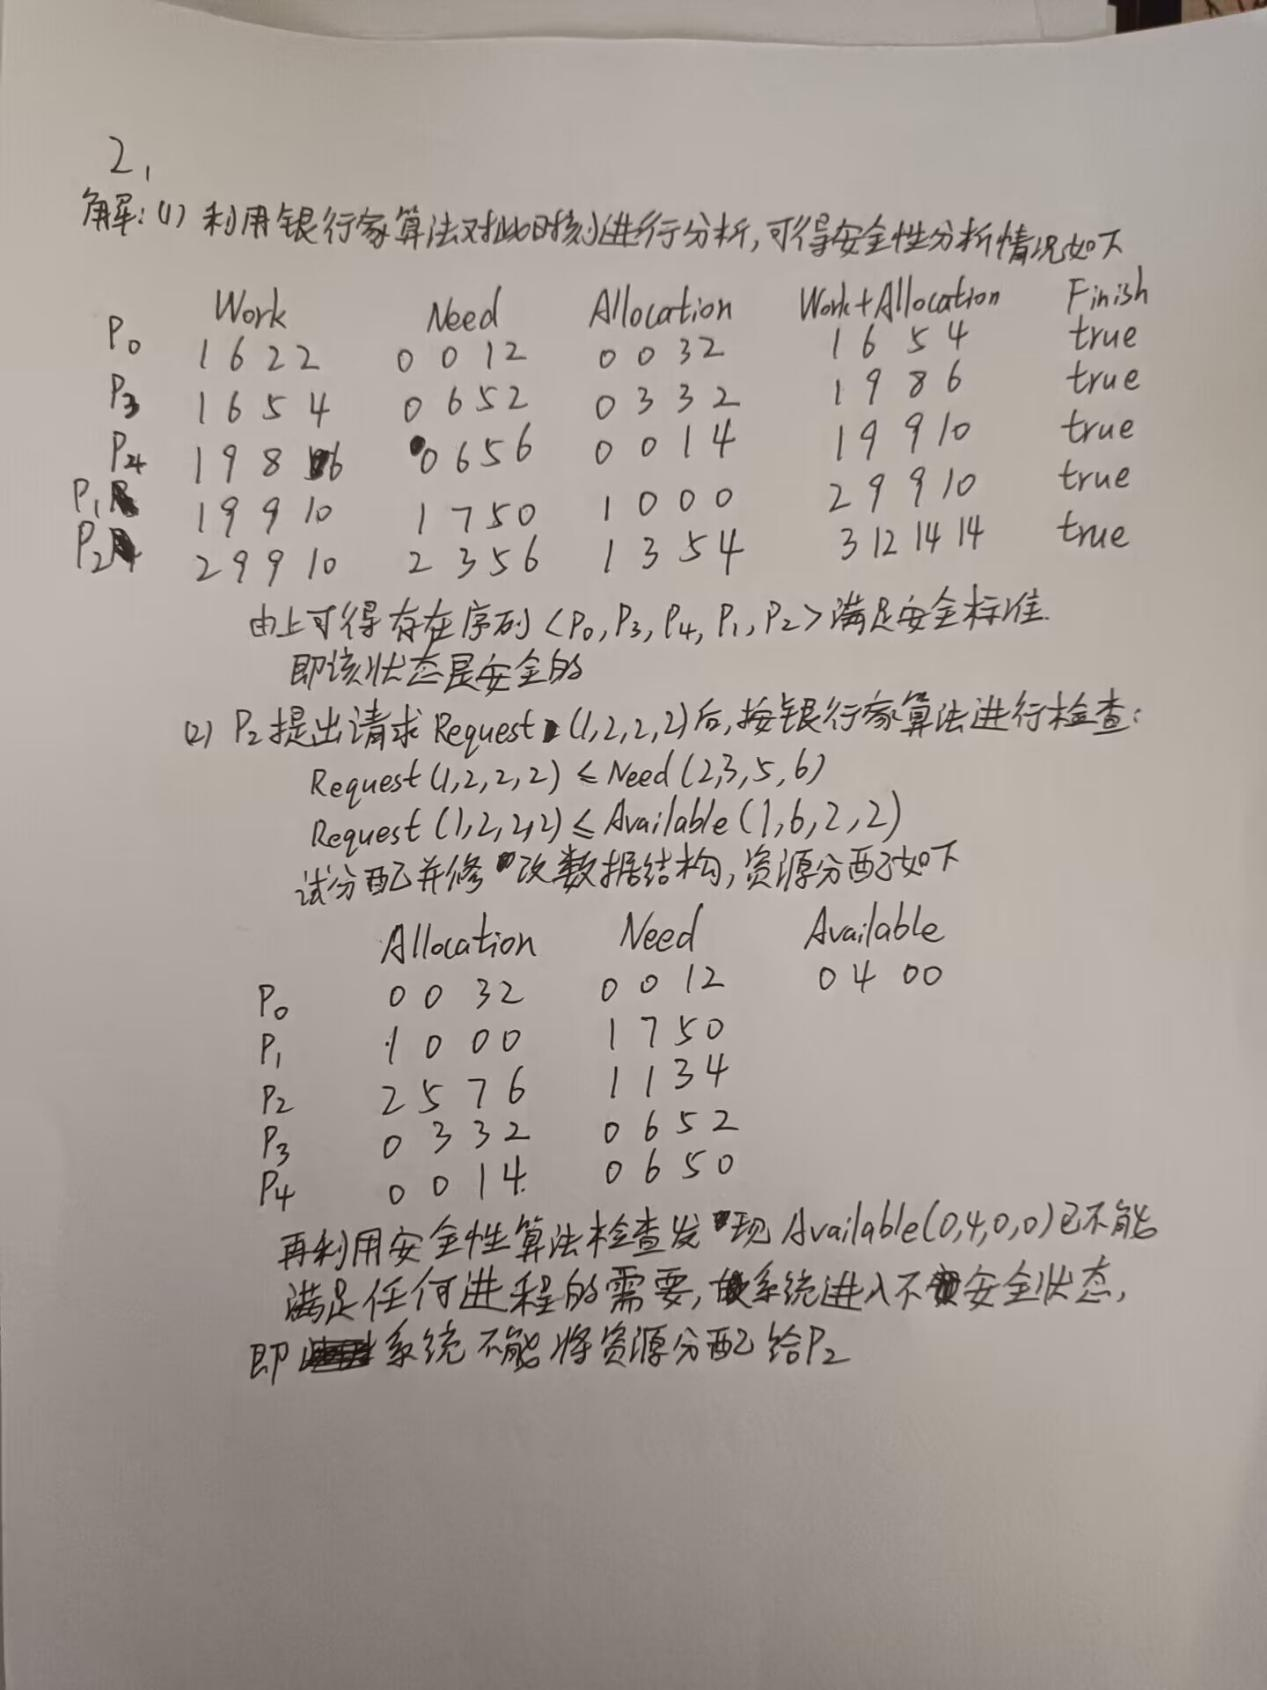 2、
解：(1) 利用银行家算法对此时刻进行分析，可得安全性分析情况如下
Work Need Allocation Work+Allocation Finish
P0 1 6 2 2 0 0 1 2 0 0 3 2 1 6 5 4 true
P3 1 6 5 4 0 6 5 2 0 3 3 2 1 9 8 6 true
P4 1 9 8 6 0 6 5 6 0 0 1 4 1 9 9 10 true
P1 1 9 9 10 1 7 5 0 1 0 0 0 2 9 9 10 true
P2 2 9 9 10 2 3 5 6 1 3 5 4 3 12 14 14 true
由上可得存在序列<P0, P3, P4, P1, P2>满足安全标准.
即该状态是安全的
(2) P2提出请求Request (1,2,2,2)后,按银行家算法进行检查:
Request(1,2,2,2) ≤ Need(2,3,5,6)
Request(1,2,2,2) ≤ Available(1,6,2,2)
试分配并修改数据结构,资源分配如下
Allocation Need Available
P0 0 0 3 2 0 0 1 2 0 4 0 0
P1 1 0 0 0 1 7 5 0
P2 2 5 7 6 1 1 3 4
P3 0 3 3 2 0 6 5 2
P4 0 0 1 4 0 6 5 0
再利用安全性算法检查发现Available(0,4,0,0)已不能
满足任何进程的需要,故系统进入不安全状态,
即系统不能将资源分配给P2